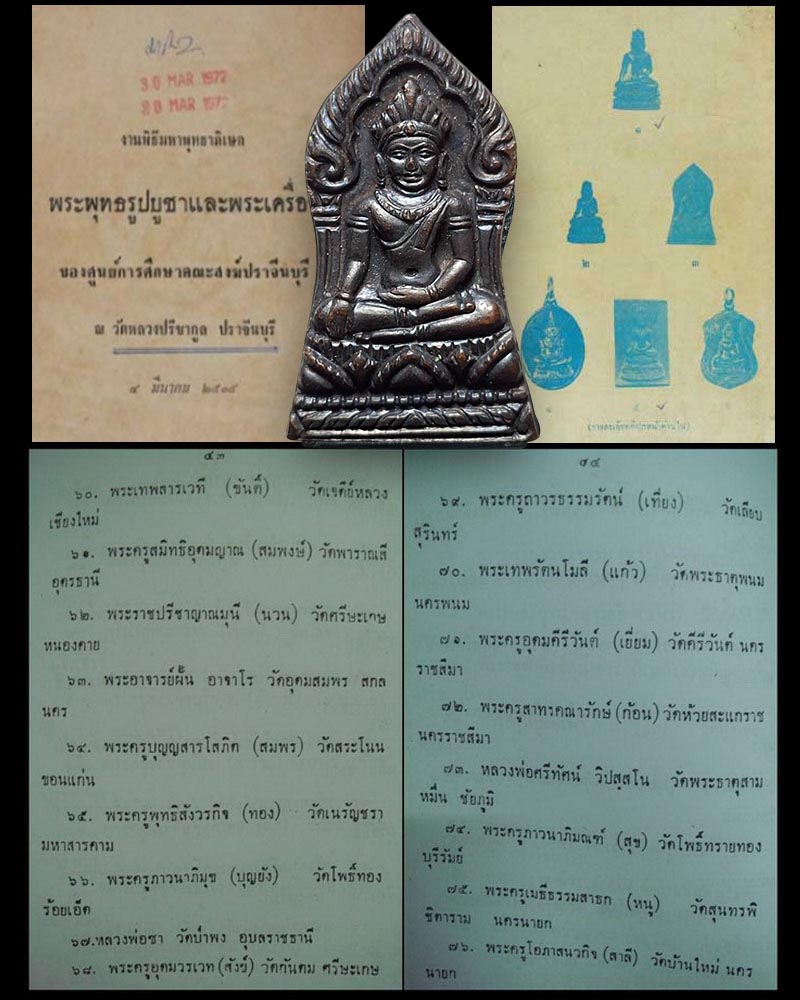 30 MAR 1972
30 MAR 1972
งานพิธีมหาพุทธาภิเษก
พระพุทธรูปบูชาและพระเครื่อ
ของศูนย์การศึกษาคณะสงฆ์ปราจีนบุรี
ณ วัดหลวงปรีชากูล ปราจีนบุรี
๔ มีนาคม ๒๕๑๔
๑
๒
๓
๔
๕
(รายละเอียดอยู่ปกหน้าด้านใน)
๔๓
๖๐. พระเทพสารเวที (ขันติ์) วัดเจดีย์หลวง
เชียงใหม่
๖๑. พระครูสมิทธิอุดมญาณ (สมพงษ์) วัดพาราณสี
อุดรธานี
๖๒. พระราชปรีชาญาณมุนี (นวน) วัดศรีษะเกษ
หนองคาย
๖๓. พระอาจารย์ฝั้น อาจาโร วัดอุดมสมพร สกล
นคร
๖๔. พระครูบุญญสารโสภิต (สมพร) วัดสระโนน
ขอนแก่น
๖๕. พระครูพุทธิสังวรกิจ (ทอง) วัดเนรัญชรา
มหาสารคาม
๖๖. พระครูภาวนาภิมุข (บุญยัง) วัดโพธิ์ทอง
ร้อยเอ็ด
๖๗.หลวงพ่อชา วัดป่าพง อุบลราชธานี
๖๘. พระครูอุดมวรเวท (สังข์) วัดกันตม ศรีษะเกษ
๔๔
๖๙. พระครูถาวรธรรมรัตน์ (เที่ยง) วัดเลียบ
สุรินทร์
๗๐. พระเทพรัตนโมลี (แก้ว) วัดพระธาตุพนม
นครพนม
๗๑. พระครูอุดมคีรีวันต์ (เยี่ยม) วัดคีรีวันต์ นคร
ราชสีมา
๗๒. พระครูสาทรคณารักษ์ (ก้อน) วัดห้วยสะแกราช
นครราชสีมา
๗๓. หลวงพ่อศรีทัศน์ วิปสฺสโน วัดพระธาตุสาม
หมื่น ชัยภูมิ
๗๔. พระครูภาวนาภิมณฑ์ (สุข) วัดโพธิ์ทรายทอง
บุรีรัมย์
๗๕. พระครูเมธีธรรมสาธก (หนู) วัดสุนทรพิ
ชิตาราม นครนายก
๗๖. พระครูโอภาสนวกิจ (สาลี) วัดบ้านใหม่ นคร
นายก